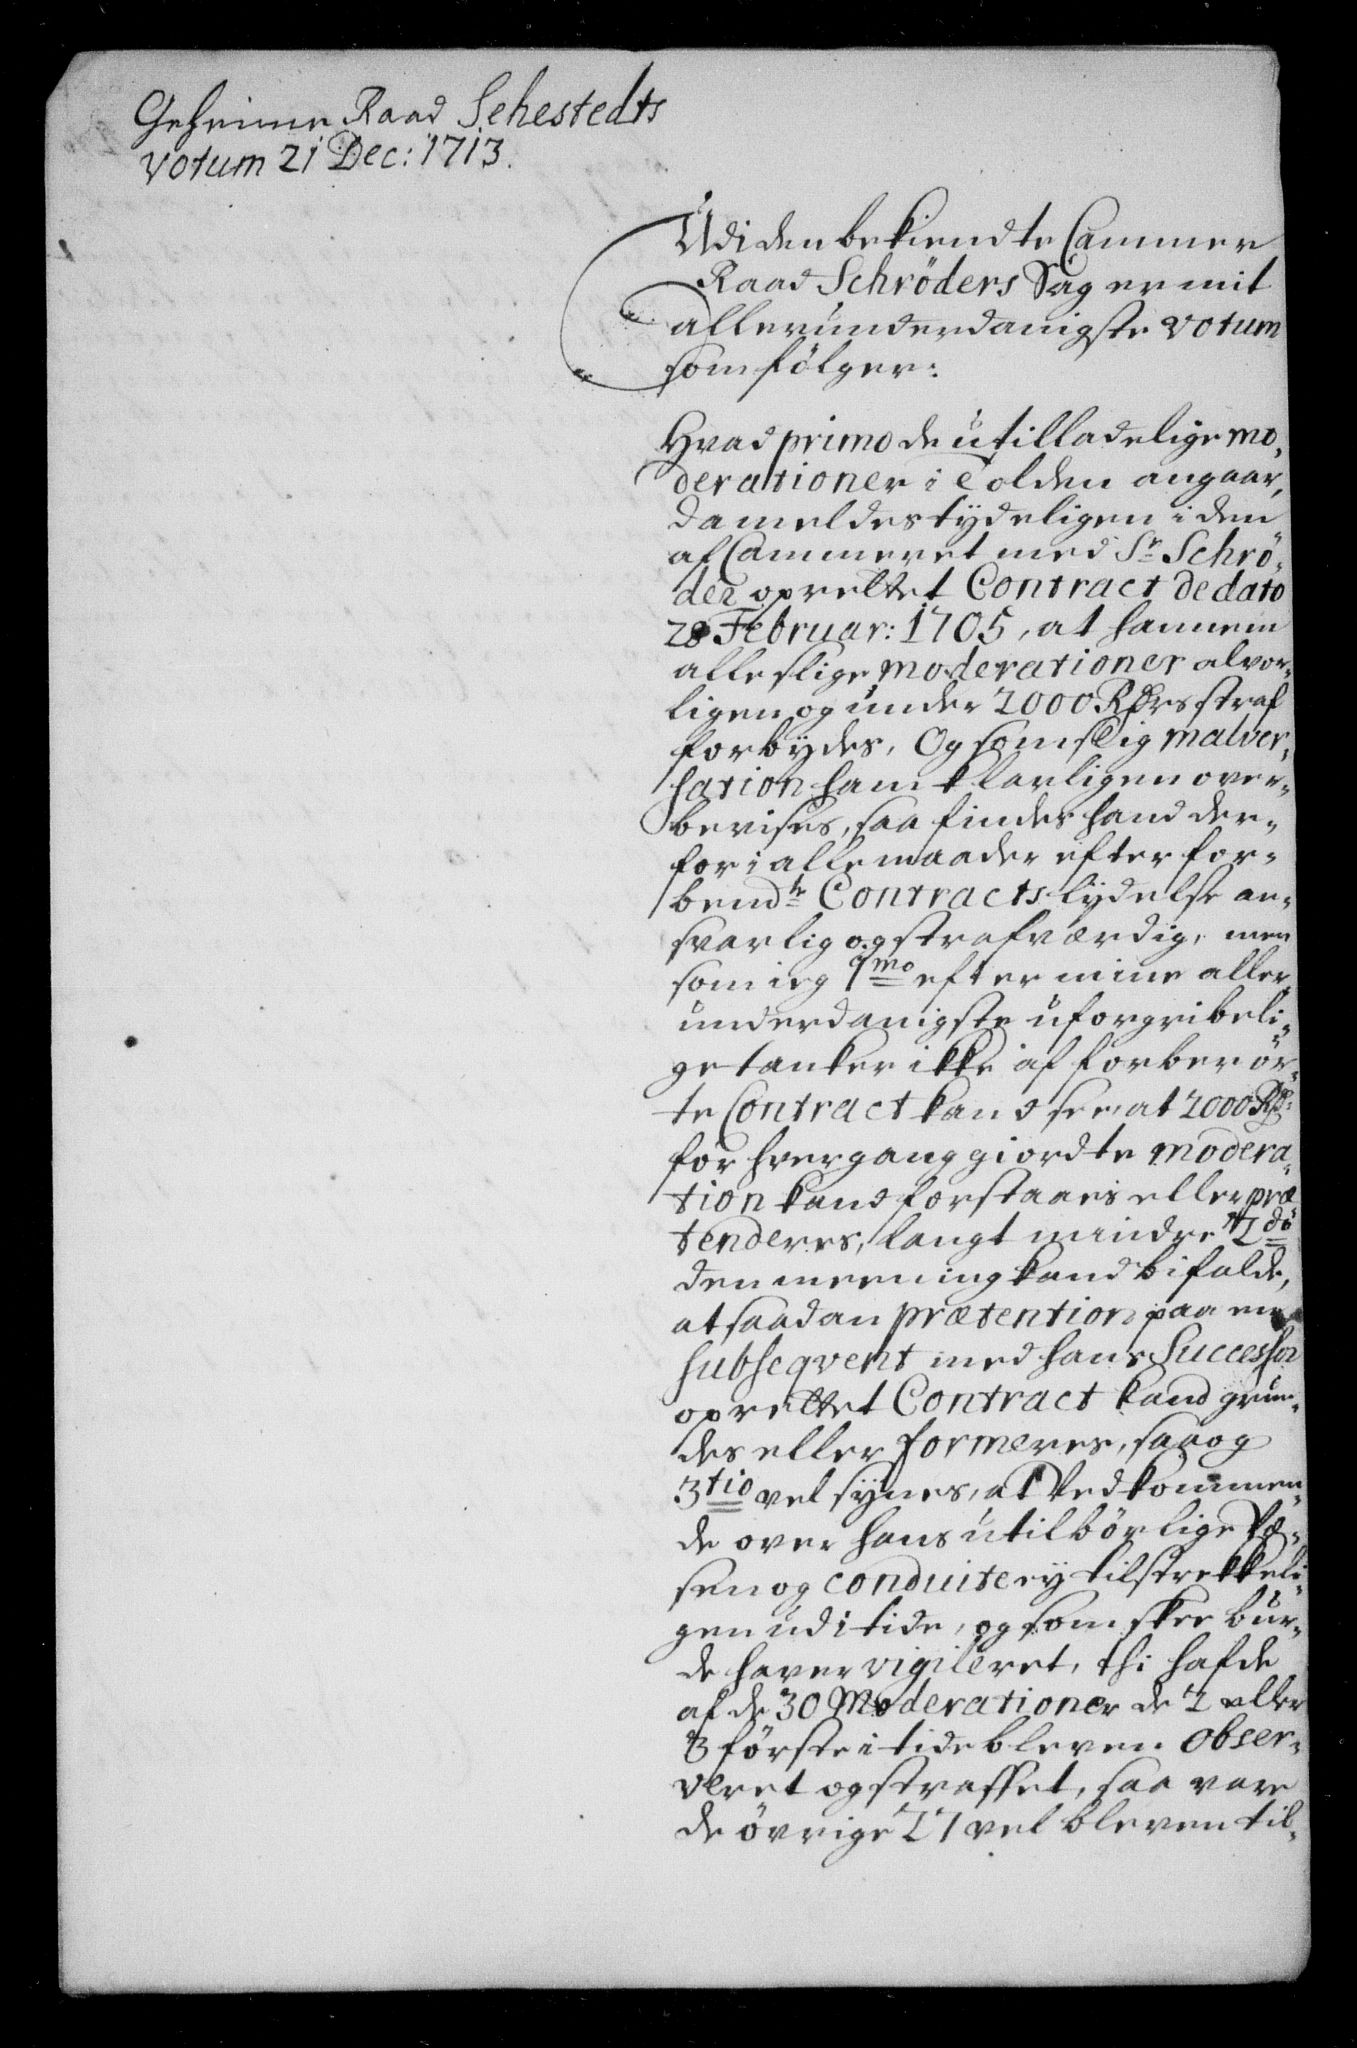 Geheime Raad Sehestedts
Votum 21 Dec: 1713.
Udi den bekiendte Cammer
Raad Schröders Sag er mit
allerunderdanigste votum
som følger:
Hvad primo de utilladelige mo,
derationer i Tolden angaar,
da meldes tydeligen i den
af Cammeret med Sr Schrö-
der oprettet Contract de dato
28 Februar: 1705, at hannem
alle slige moderationer alvor-
ligen og under 2000 Rdrs straf
forbydes, Og som slig malver,
sation ham klarligen over-
bevises, saa findes hand der-
for i alle maader efter for-
bemdte Contracts lydelse an-
svarlig og strafværdig, men
som ieg 1mo efter mine aller,
underdanigste uforgribeli-
ge tanker ikke af forberør-
te Contract kand see, at 2000 Rdr
for hver gang giordte modera-
tion kand forstaaes eller præ
tenderes, langt mindre 2do
den meening kand bifalde,
at saadan prætention paa en
subseqvent med hans Successor
oprettet Contract kand grun-
des eller formeres, saa og
3tio vel synes, at Vedkommen-
de over hans utilbørlige Væ-
sen og conduite ey tilstrekkeli-
gen ud i tide, og som skee bur-
de haver vigileret, thi hafde
af de 30 Moderationer de 2 eller
3 første i tide bleven obser-
veret og straffet, saa vare
de øvrige 27 vel bleven til-